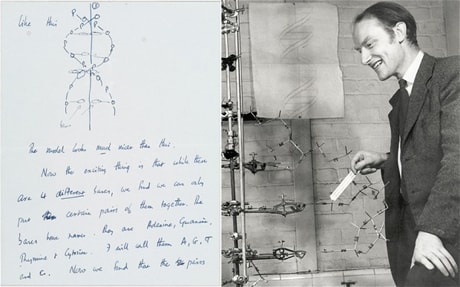 like this
The model looks much nicer than this.
Now the exciting thing is that while there
are 4 different bases, we find we can only
put certain pairs of them together. The
bases have names. They are Adenine, Guanine,
Thymine & Cytosine. I will call them A, G, T
and C. Now we find that the pairs